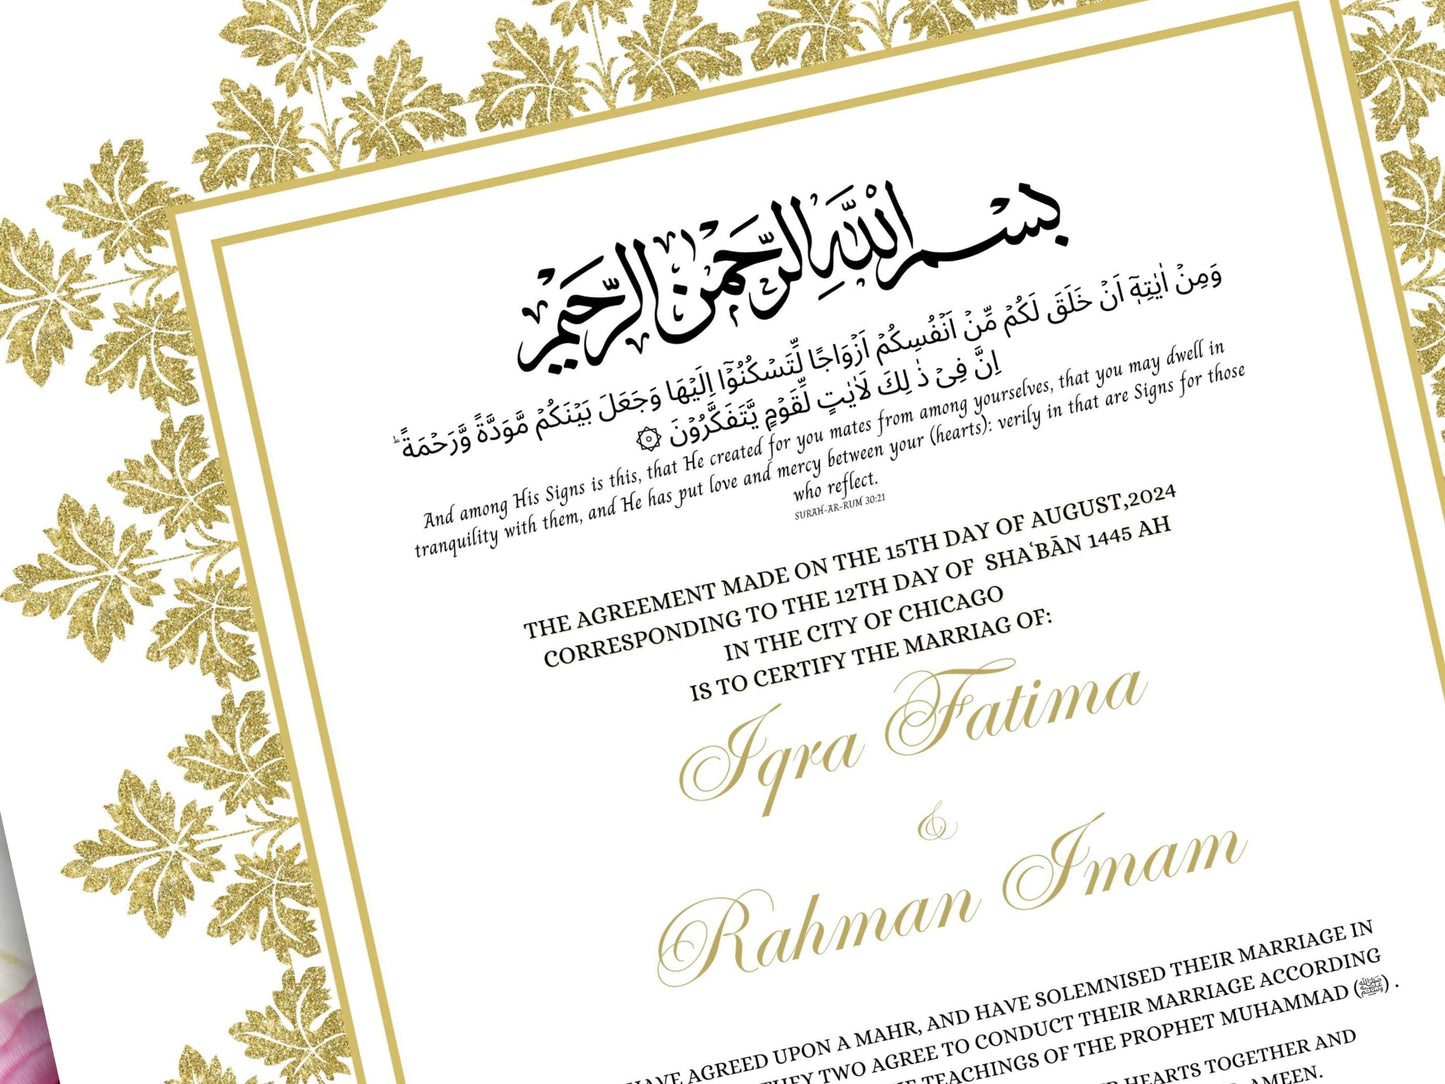 بِسْمِ اللَّهِ الرَّحْمٰنِ الرَّحِيْمِ
وَمِنۡ اٰيٰتِهٖۤ اَنۡ خَلَقَ لَكُمۡ مِّنۡ اَنۡفُسِكُمۡ اَزۡوَاجًا لِّتَسۡكُنُوۡۤا اِلَيۡهَا وَجَعَلَ بَيۡنَكُمۡ مَّوَدَّةً وَّرَحۡمَةً ؕ
اِنَّ فِىۡ ذٰ لِكَ لَاٰيٰتٍ لِّقَوۡمٍ يَّتَفَكَّرُوۡنَ ۞
And among His Signs is this, that He created for you mates from among yourselves, that you may dwell in
tranquility with them, and He has put love and mercy between your (hearts): verily in that are Signs for those
who reflect.
SURAH-AR-RUM 30:21
THE AGREEMENT MADE ON THE 15TH DAY OF AUGUST,2024
CORRESPONDING TO THE 12TH DAY OF SHAʿBĀN 1445 AH
IN THE CITY OF CHICAGO
IS TO CERTIFY THE MARRIAG OF:
Iqra Fatima
&
Rahman Imam
AGREED UPON A MAHR, AND HAVE SOLEMNISED THEIR MARRIAGE IN
TWO AGREE TO CONDUCT THEIR MARRIAGE ACCORDING
TEACHINGS OF THE PROPHET MUHAMMAD (ﷺ) .
HEARTS TOGETHER AND
AMEEN.